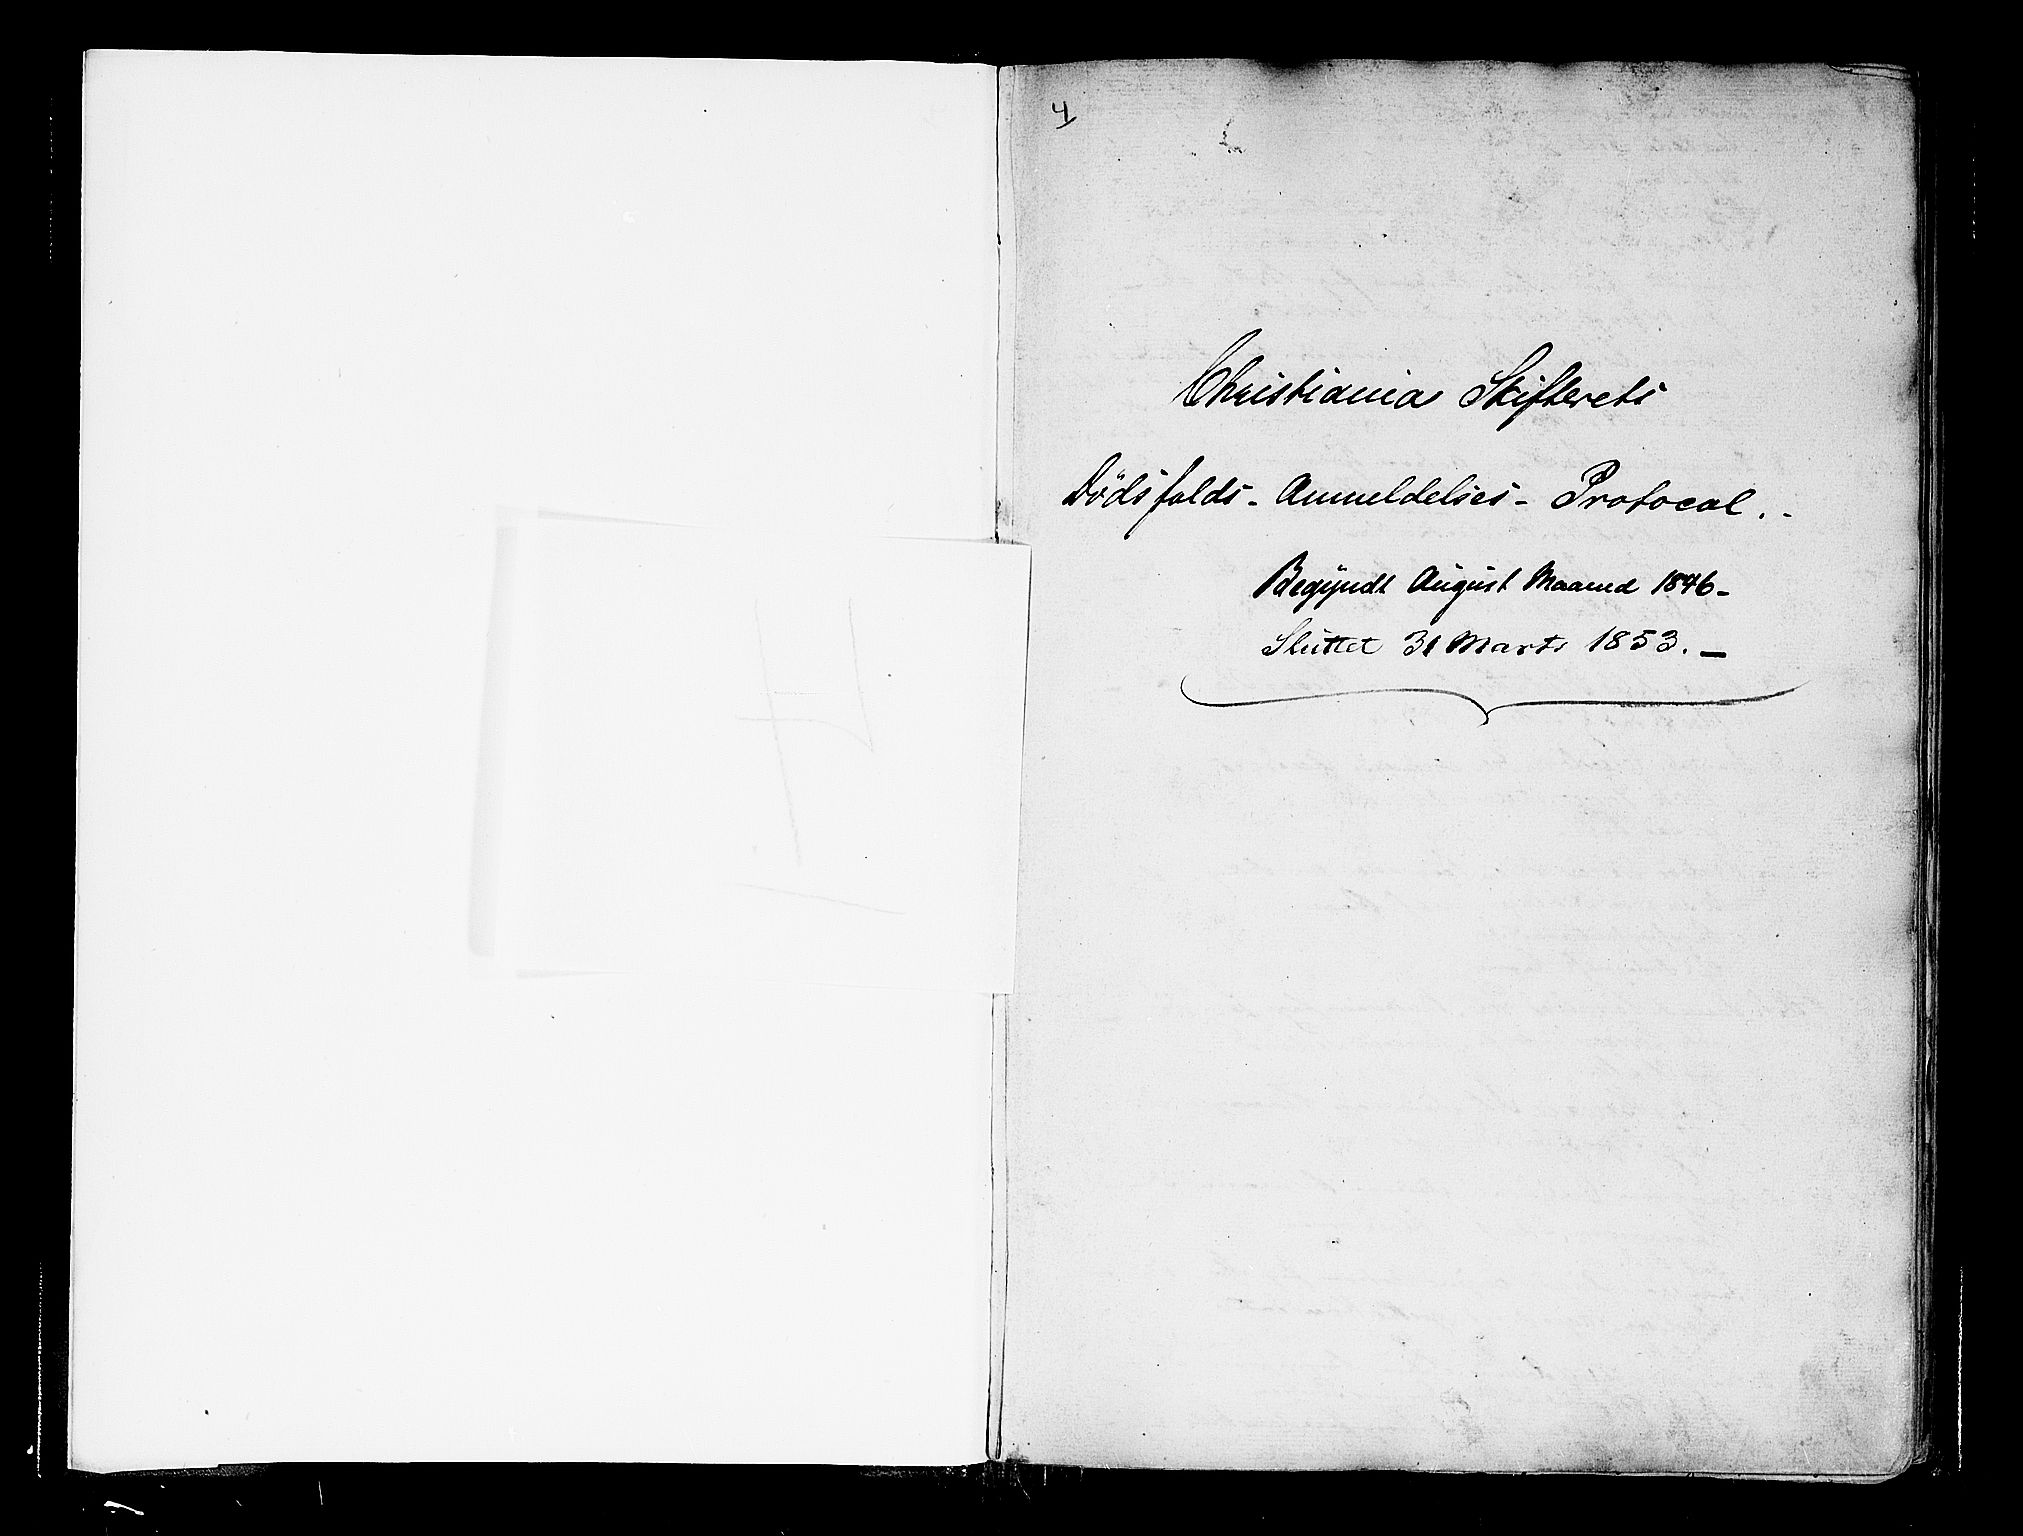 4
Christiania Skifterets
Dødsfalds - Anmeldelses - Protocol. -
Begyndt August Maaned 1846 -
Sluttet 31 Marts 1853. -